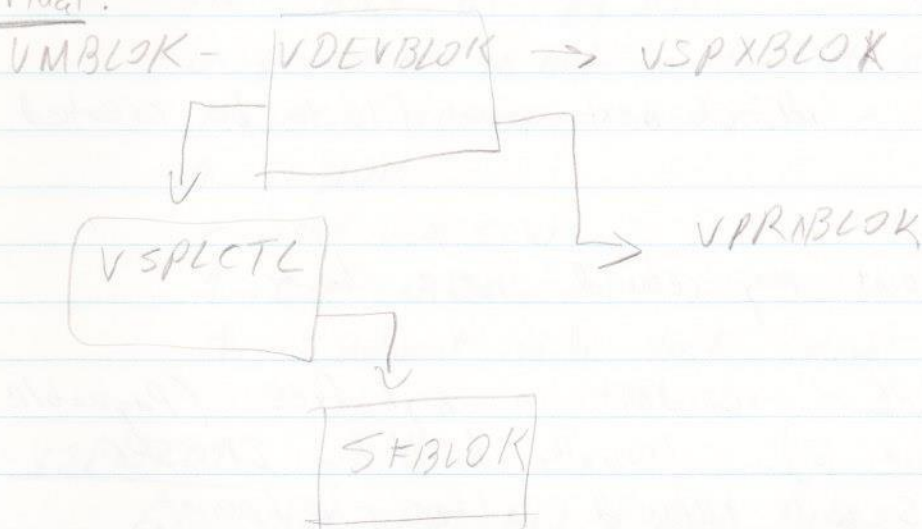 VMBLOK - VDEVBLOK → VSPXBLOK
VSPLCTL
VPRNBLOK
SFBLOK